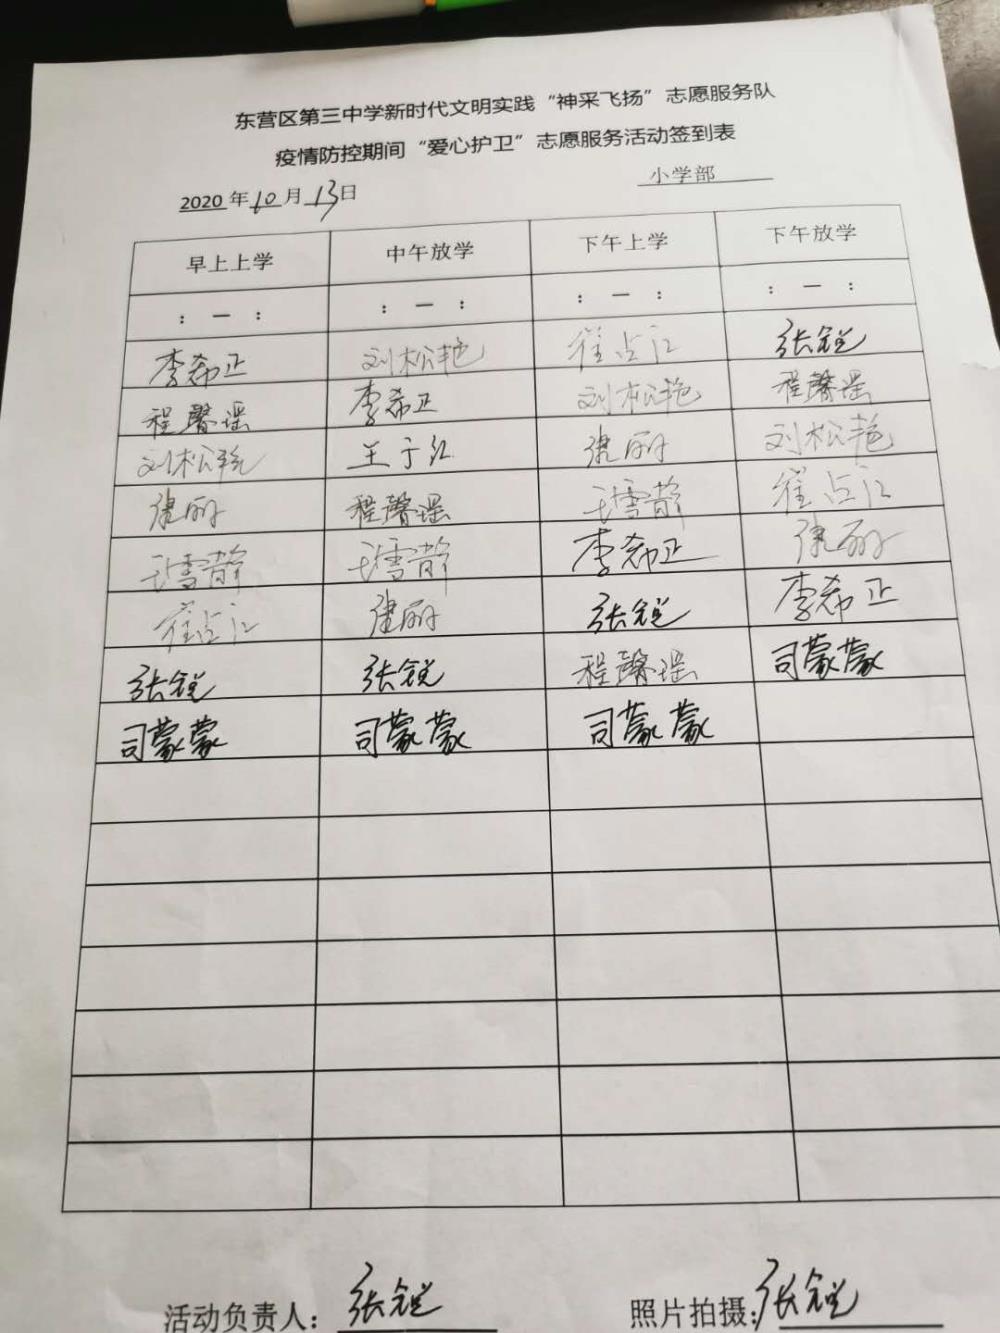 东营区第三中学新时代文明实践“神采飞扬”志愿服务队
疫情防控期间“爱心护卫”志愿服务活动签到表
2020 年 10 月 13 日 小学部
早上上学 中午放学 下午上学 下午放学
： — ： ： — ： ： — ： ： — ：
李希正 刘松艳 崔占江 张锐
程馨瑶 李希正 刘松艳 程馨瑶
刘松艳 王于红 刘松艳
程馨瑶 崔占江
李希正
崔占江 张锐 李希正
张锐 张锐 程馨瑶 司蒙蒙
司蒙蒙 司蒙蒙 司蒙蒙
活动负责人： 张锐 照片拍摄： 张锐